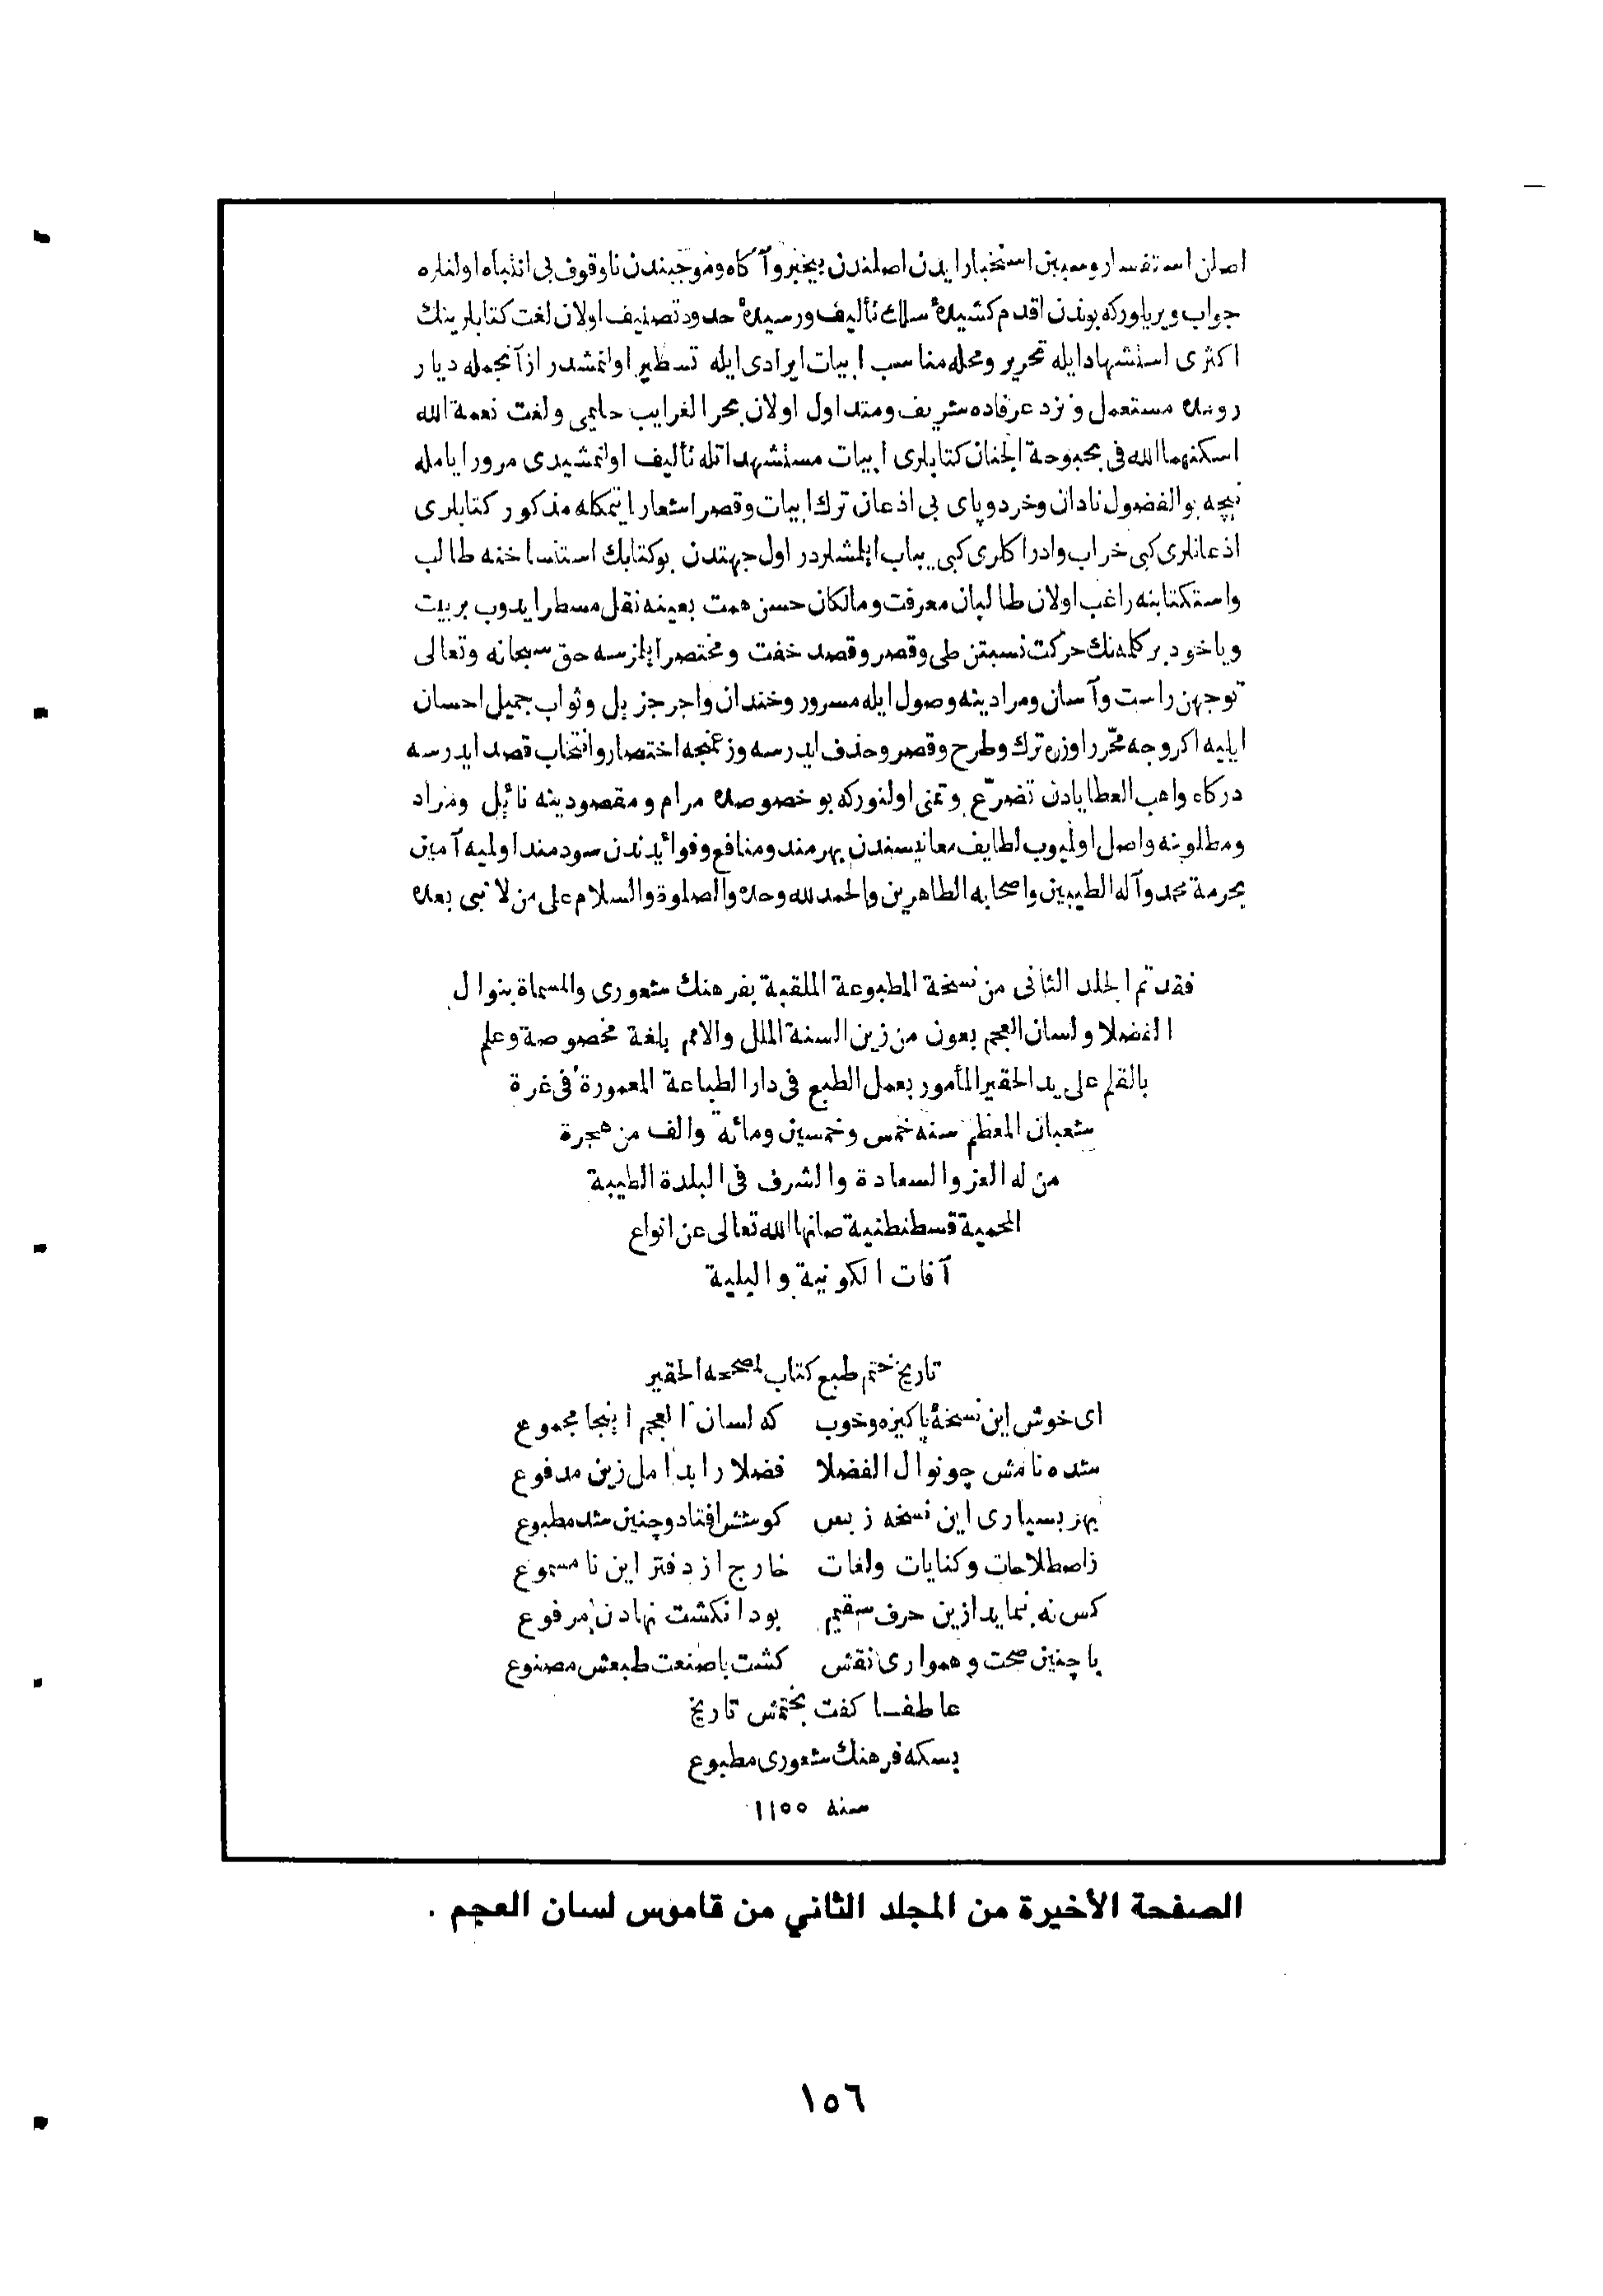 اصلن استفسار وسببن استخبار ايدن اصلندن بيخبر وآكاه وموجبندن ناوقوف بى انتباه اولنلره
جواب ويريلوركه بوندن اقدم كشيدهٔ سلك تأليف ورسيدهٔ حدود تصنيف اولان لغت كتابلرينك
اكثرى استشهاد ايله تحرير ومحله مناسب ابيات ايرادى ايله تسطير اولنمشدر از آنجمله ديار
رومده مستعمل ونزد عرفاده شريف ومتداول اولان بحر الغرايب حليمى ولغت نعمة الله
اسكنهما الله فى بحبوحة الجنان كتابلرى ابيات مستشهداتله تأليف اولنمشيدى مرور ايامله
نيچه بو الفضول نادان وخردوپاى بى اذعان ترك ابيات وقصر اشعار ايتمكله مذكور كتابلرى
اذعانلرى كبى خراب وادراكلرى كبى يباب ايلمشلردر اول جهتدن بوكتابك استنساخنه طالب
واستكتابنه راغب اولان طالبان معرفت ومالكان حسن همت بعينه نقل مسطر ايدوب بر بيت
وياخود بر كلمه نك حركت نسبتن طى وقصر وقصد خفت ومختصر ايلرسه حق سبحانه وتعالى
توجهن راست وآسان ومرادينه وصول ايله مسرور وخندان واجر جزيل وثواب جميل احسان
ايليه اكر وجه محرر اوزره ترك وطرح وقصر وحذف ايدرسه وزعمنجه اختصار وانتخاب قصد ايدرسه
دركاه واهب العطايادن تضرّع وتمنى اولنوركه بو خصوصده مرام ومقصودينه نائل ومراد
ومطلوبنه واصل اولميوب لطايف معانيسندن بهرمند ومنافع وفوائدندن سودمند اولميه آمين
بحرمة محمد وآله الطيبين واصحابه الطاهرين والحمد لله وحده والصلوة والسلام على من لا نبى بعده
فقد تم الجلد الثانى من نسخة المطبوعة الملقبة بفرهنك شعورى والمسماة بنوال
الفضلا ولسان العجم بعون من زين السنة الملل والامم بلغة مخصوصة وعلم
بالقلم على يد الحقير المأمور بعمل الطبع فى دار الطباعة المعمورة فى غرة
شعبان المعظم سنه خمس وخمسين ومائة والف من هجرة
من له العز والسعادة والشرف فى البلدة الطيبة
المحمية قسطنطنية صانها الله تعالى عن انواع
آفات الكونية والبلية
تاريخ ختم طبع كتاب لمصححه الحقير
اى خوش اين نسخهٔ پاكيزه وخوب كه لسان العجم اينجا مجموع
شده نامش چو نوال الفضلا فضلا را بد امل زين مدفوع
بهر بسيارى اين نسخه ز بس كوشش افتاد وچنين شد مطبوع
ز اصطلاحات وكنايات ولغات خارج از دفتر اين نا مسموع
كس نه بنمايد ازين حرف سقيم بود انكشت نهادن مرفوع
با چنين صحت وهموارى نقش كشت با صنعت طبعش مصنوع
عاطفا كفت بختمش تاريخ
بسكه فرهنك شعورى مطبوع
سنه ١١٥٥
الصفحة الأخيرة من المجلد الثاني من قاموس لسان العجم .
١٥٦